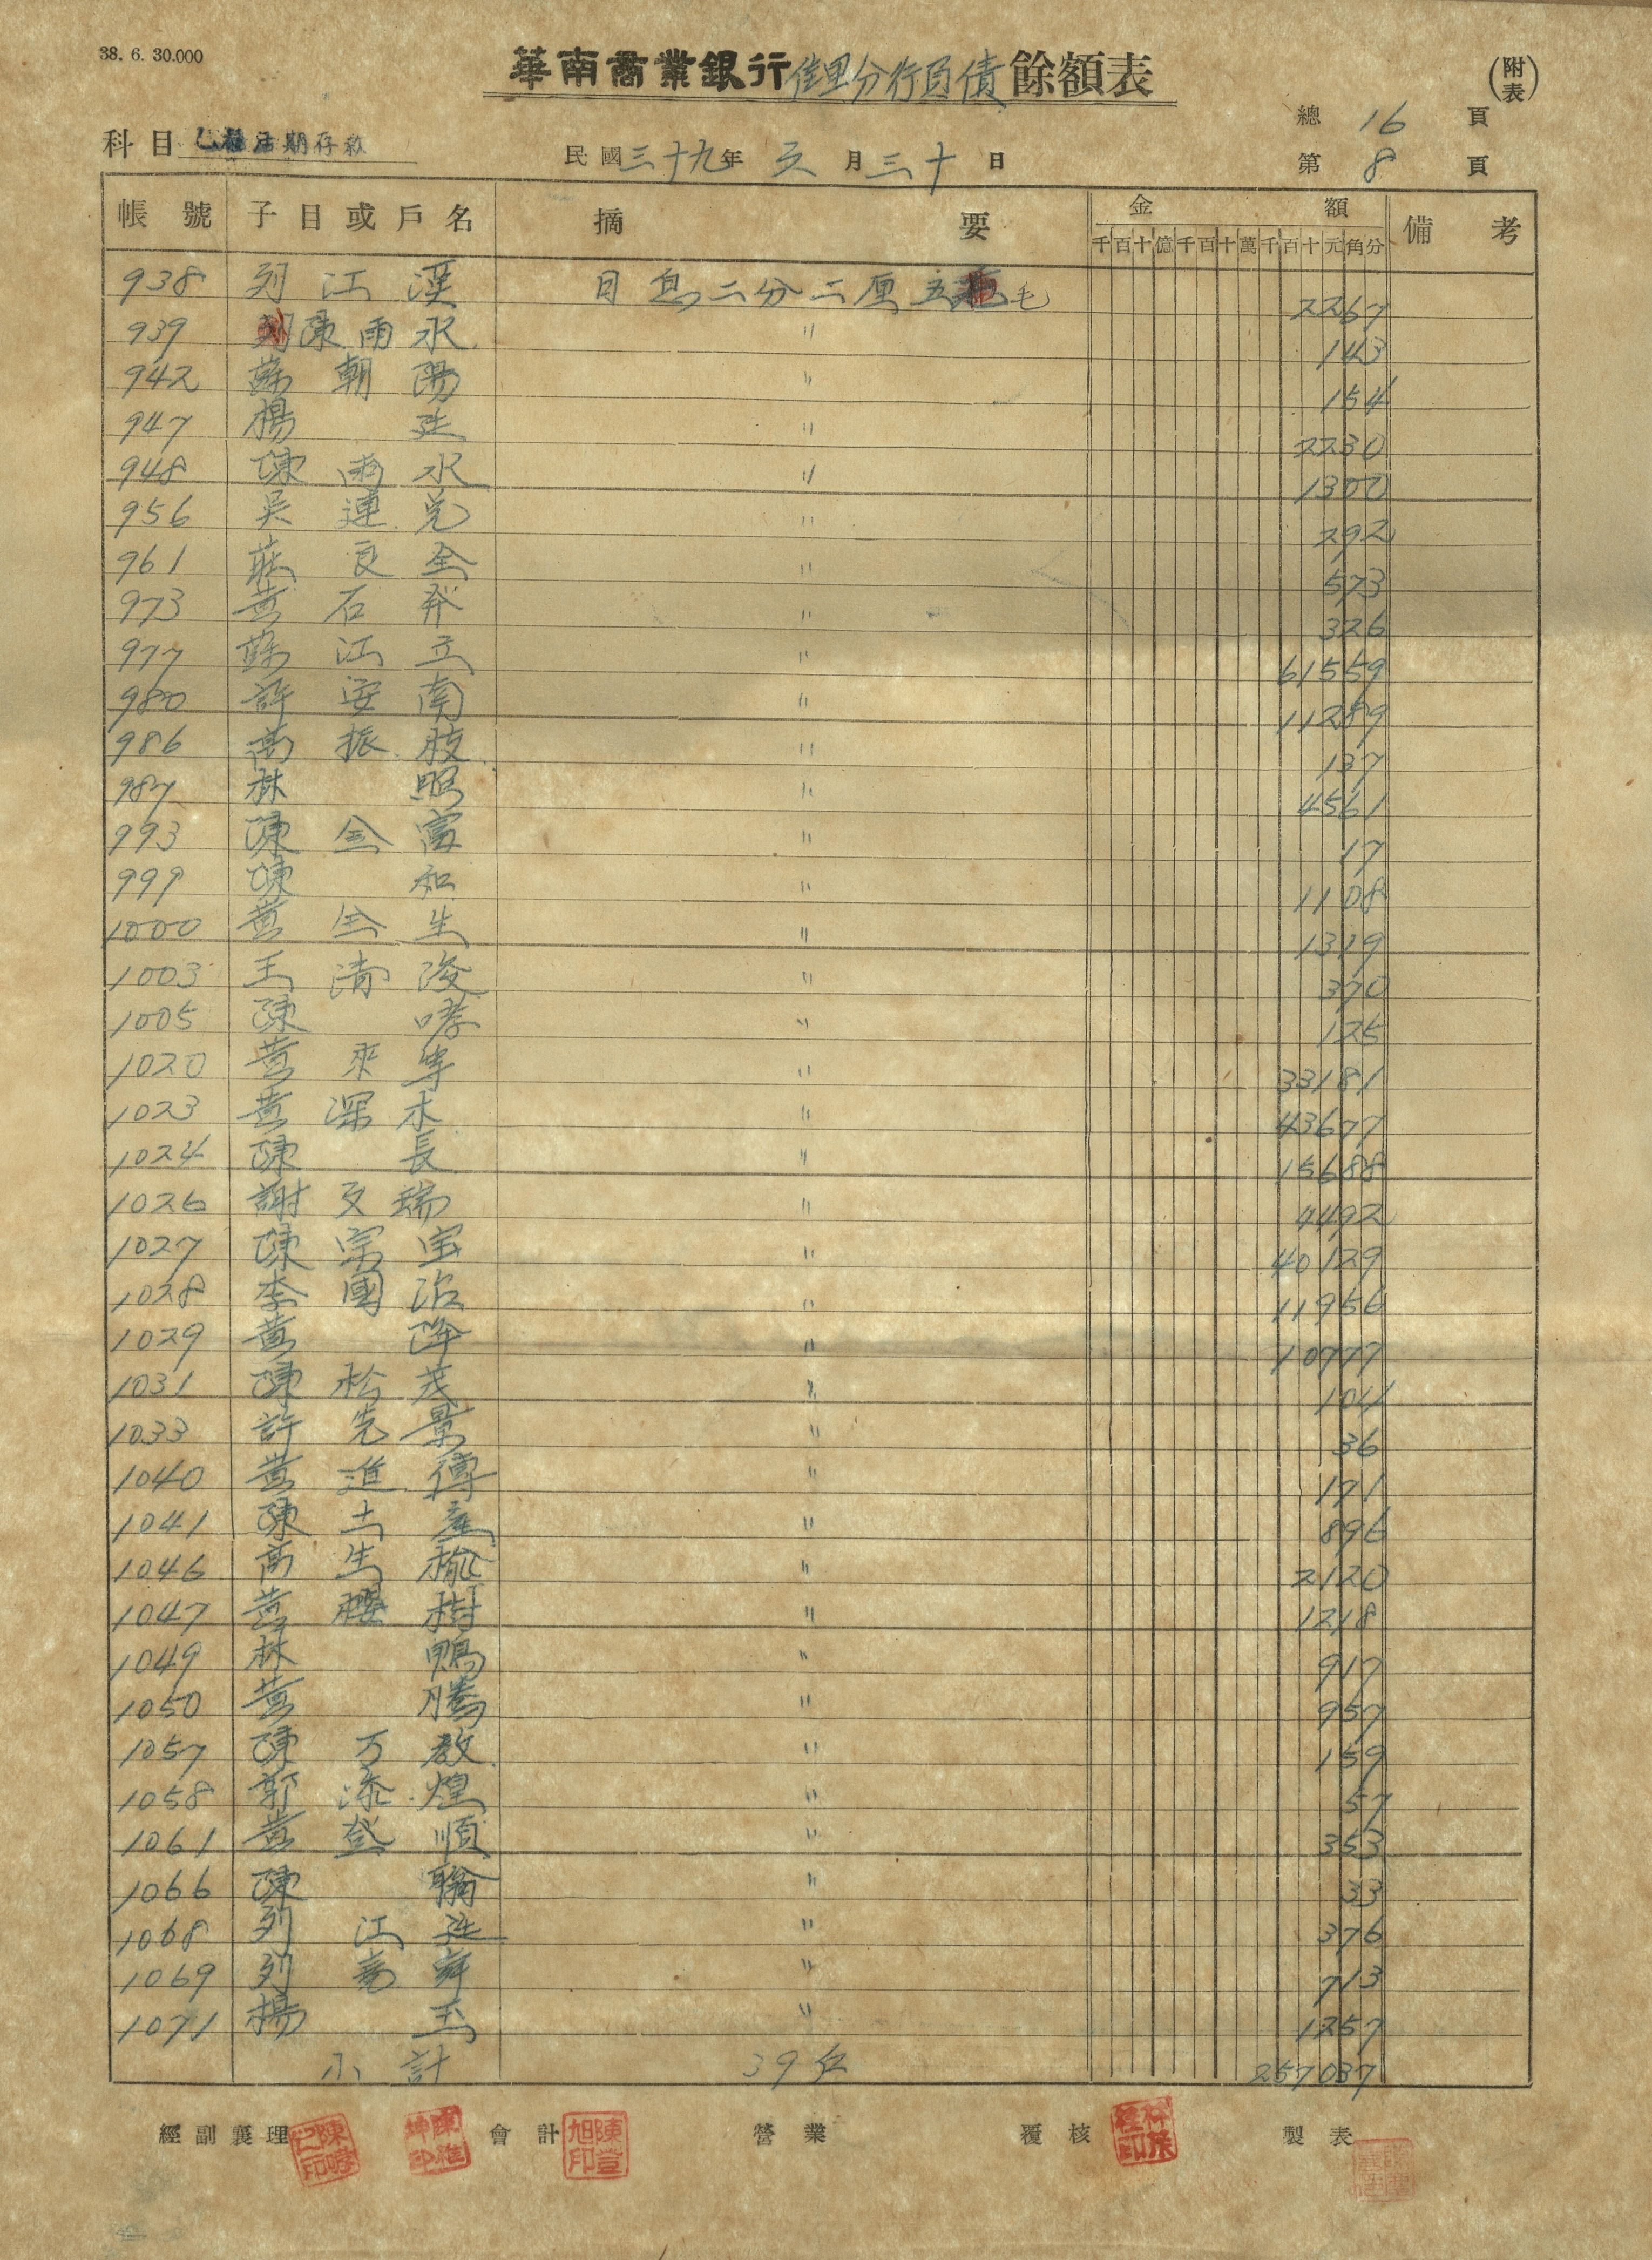 38. 6. 30.000
華南商業銀行佳里分行負債餘額表
(附表)
總 16 頁
科目 乙種活期存款
民國三十九年 五 月 三十 日
第 8 頁
帳號 子目或戶名 摘要 金額 備考
千百十億千百十萬千百十元角分
938 列江漢 日息二分二厘五毛 2267
939 陳雨水 〃 143
942 蘇朝陽 〃 154
947 楊 廷 〃 2230
948 陳雨水 〃 1300
956 吳連兒 〃 292
961 莊良全 〃 573
973 黃石 〃 326
977 蘇江立 〃 61559
980 許安南 〃 11289
986 高振枝 〃 137
987 林 照 〃 4561
993 陳金富 〃 17
999 陳 和 〃 1108
1000 黃金生 〃 1319
1003 王清俊 〃 370
1005 陳 哮 〃 125
1020 黃來 〃 33181
1023 黃深木 〃 43677
1024 陳 長 〃 15688
1026 謝文瑞 〃 4492
1027 陳宗宝 〃 40129
1028 李國治 〃 11956
1029 黃 〃 10777
1031 陳松茂 〃 1041
1033 許先景 〃 36
1040 黃進傳 〃 171
1041 陳土 〃 896
1046 高生榆 〃 2120
1047 黃櫻樹 〃 1218
1049 林 鴨 〃 917
1050 黃 騰 〃 957
1057 陳万教 〃 159
1058 郭添煌 〃 57
1061 黃登順 〃 353
1066 陳 翰 〃 33
1068 列江廷 〃 376
1069 列 〃 713
1071 楊 玉 〃 1257
小計 39 257037
經副襄理 會計 營業 覆核 製表
陳登旭印